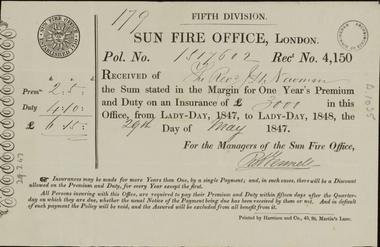 179
FIFTH DIVISION.
SUN FIRE OFFICE, LONDON.
Pol. No. 1517602 Recd No. 4,150
RECEIVED of The Revd J. H. Newman
the Sum stated in the Margin for One Year's Premium
and Duty on an Insurance of £ 3000 in this
Office, from LADY-DAY, 1847, to LADY-DAY, 1848, the
29th Day of May 1847.
For the Managers of the Sun Fire Office,
Premm 2.5.
Duty 4.10.
£ 6.15.
29.5.47
A1035
☞ Insurances may be made for more Years than One, by a single Payment; and, in such cases, there will be a Discount
allowed on the Premium and Duty, for every Year except the first.
All Persons insuring with this Office, are required to pay their Premium and Duty within fifteen days after the Quarter-
day on which they are due, whether the usual Notice of the Payment being due has been received by them or not. And in default
of such payment the Policy will be void, and the Assured will be excluded from all benefit from it.
Printed by Harrison and Co., 45, St. Martin's Lane.